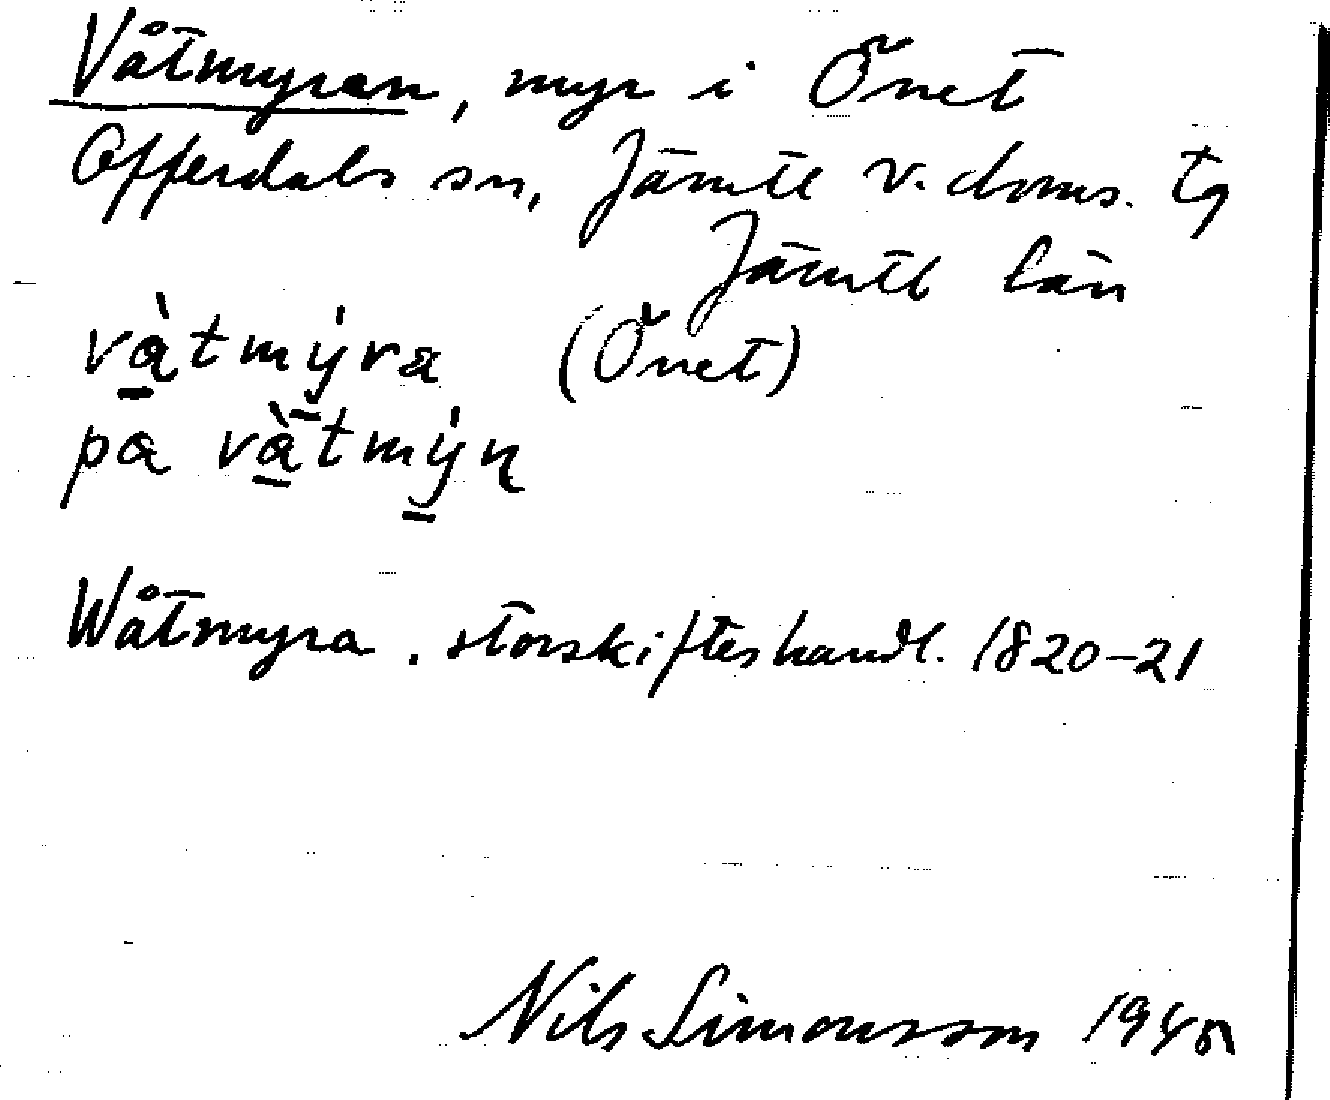 Våtmyran, myr i Önet
Offerdals sn, Jämtl v. doms. tg
Jämtl län
vàtmýra (Önet)
pa vàtmýn
Wåtmyra. storskifteshandl. 1820-21
Nils Simonsson